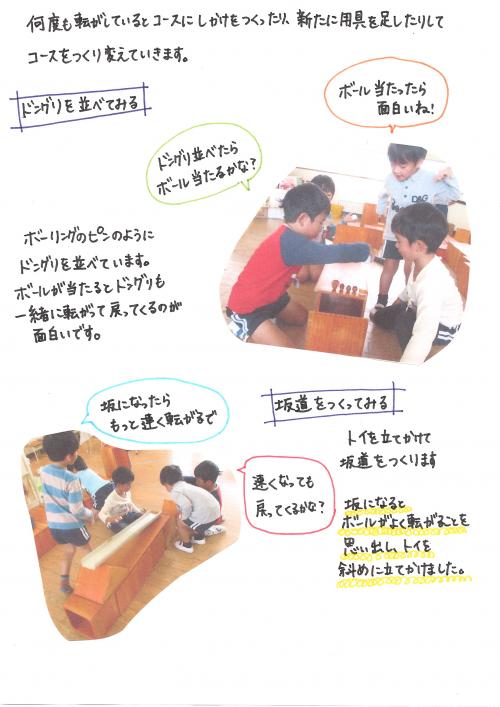 何度も転がしているとコースにしかけをつくったり、新たに用具を足したりして
コースをつくり変えていきます。
ドングリを並べてみる
ボール当たったら
面白いね!
ドングリ並べたら
ボール当たるかな?
ボーリングのピンのように
ドングリを並べています。
ボールが当たるとドングリも
一緒に転がって戻ってくるのが
面白いです。
坂になったら
もっと速く転がるで
坂道をつくってみる
速くなっても
戻ってくるかな?
トイを立てかけて
坂道をつくります
坂になると
ボールがよく転がることを
思い出し、トイを
斜めに立てかけました。